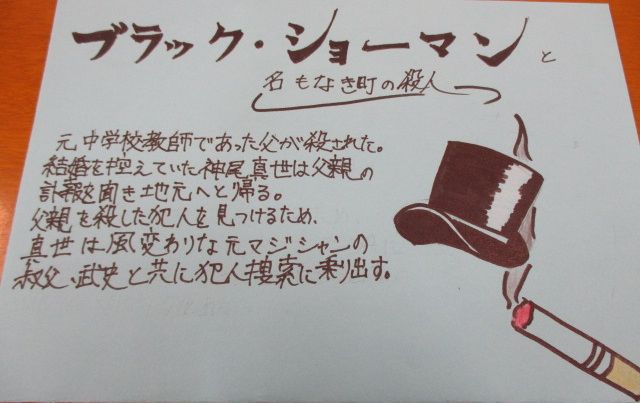 ブラック・ショーマンと
名もなき町の殺人
元中学校教師であった父が殺された。
結婚を控えていた神尾真世は父親の
訃報を聞き地元へと帰る。
父親を殺した犯人を見つけるため、
真世は風変わりな元マジシャンの
叔父、武史と共に犯人捜索に乗り出す。